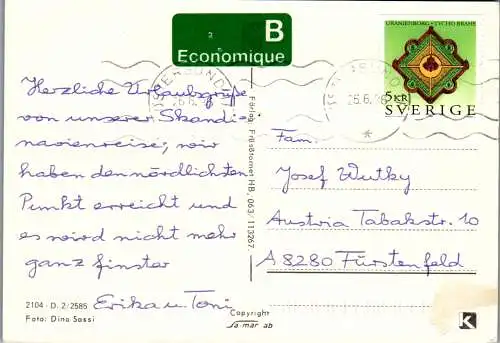 B
Economique
URANIENBORG · TYCHO BRAHE
5 KR
SVERIGE
Herzliche Urlaubsgrüße
von unserer Skandi-
navienreise; wir
haben den nördlichsten
Punkt erreicht und
es wird nicht mehr
ganz finster
Erika u Toni
2104 - D. 2/2585
Foto: Dino Sassi
Förlag: Frösötornet HB, 063/113267
Copyright
sa-mar ab
Fam.
Josef Wutky
Austria Tabakstr. 10
A 8280 Fürstenfeld
K